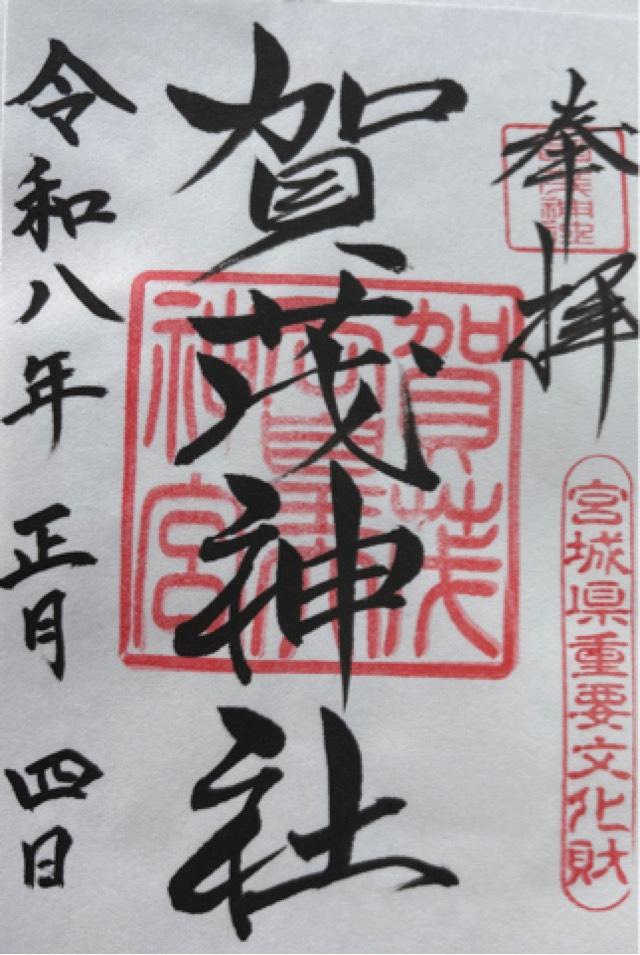 奉拝
宮城県重要文化財
賀茂神社
令和八年正月四日